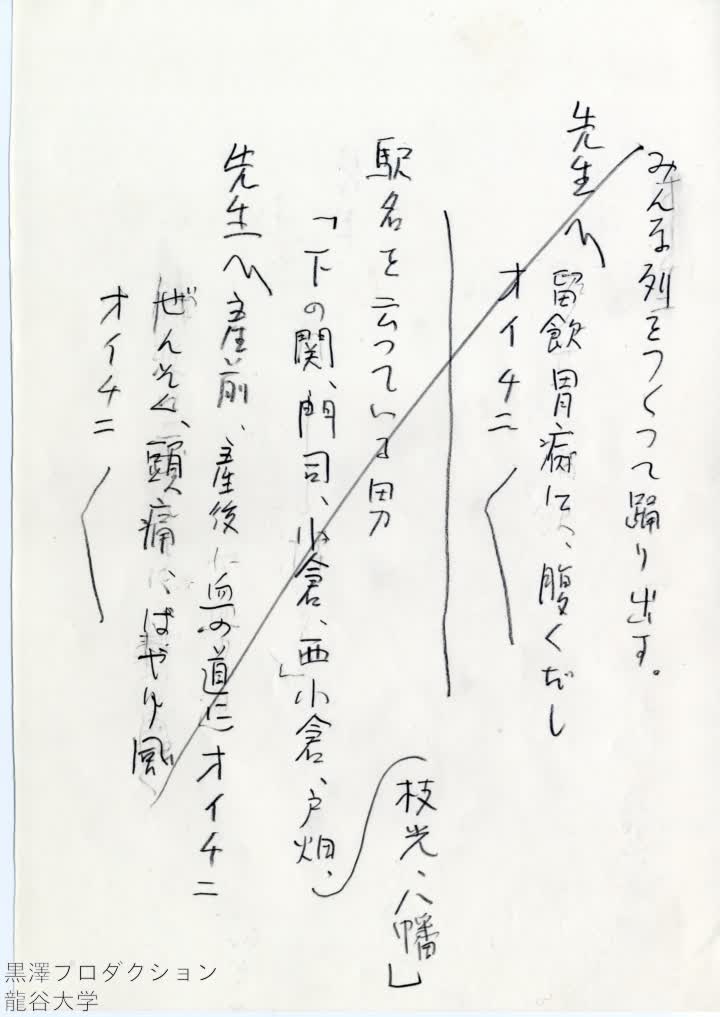 みんな列をつくって踊り出す。
先生〽留飲胃病に、腹くだし
オイチニ
駅名を云っている男
「下の関、門司、小倉、西小倉、戸畑、
枝光、八幡」
先生〽産前、産後に血の道に オイチニ
ぜんそく、頭痛、はやり風
オイチニ
黒澤プロダクション
龍谷大学